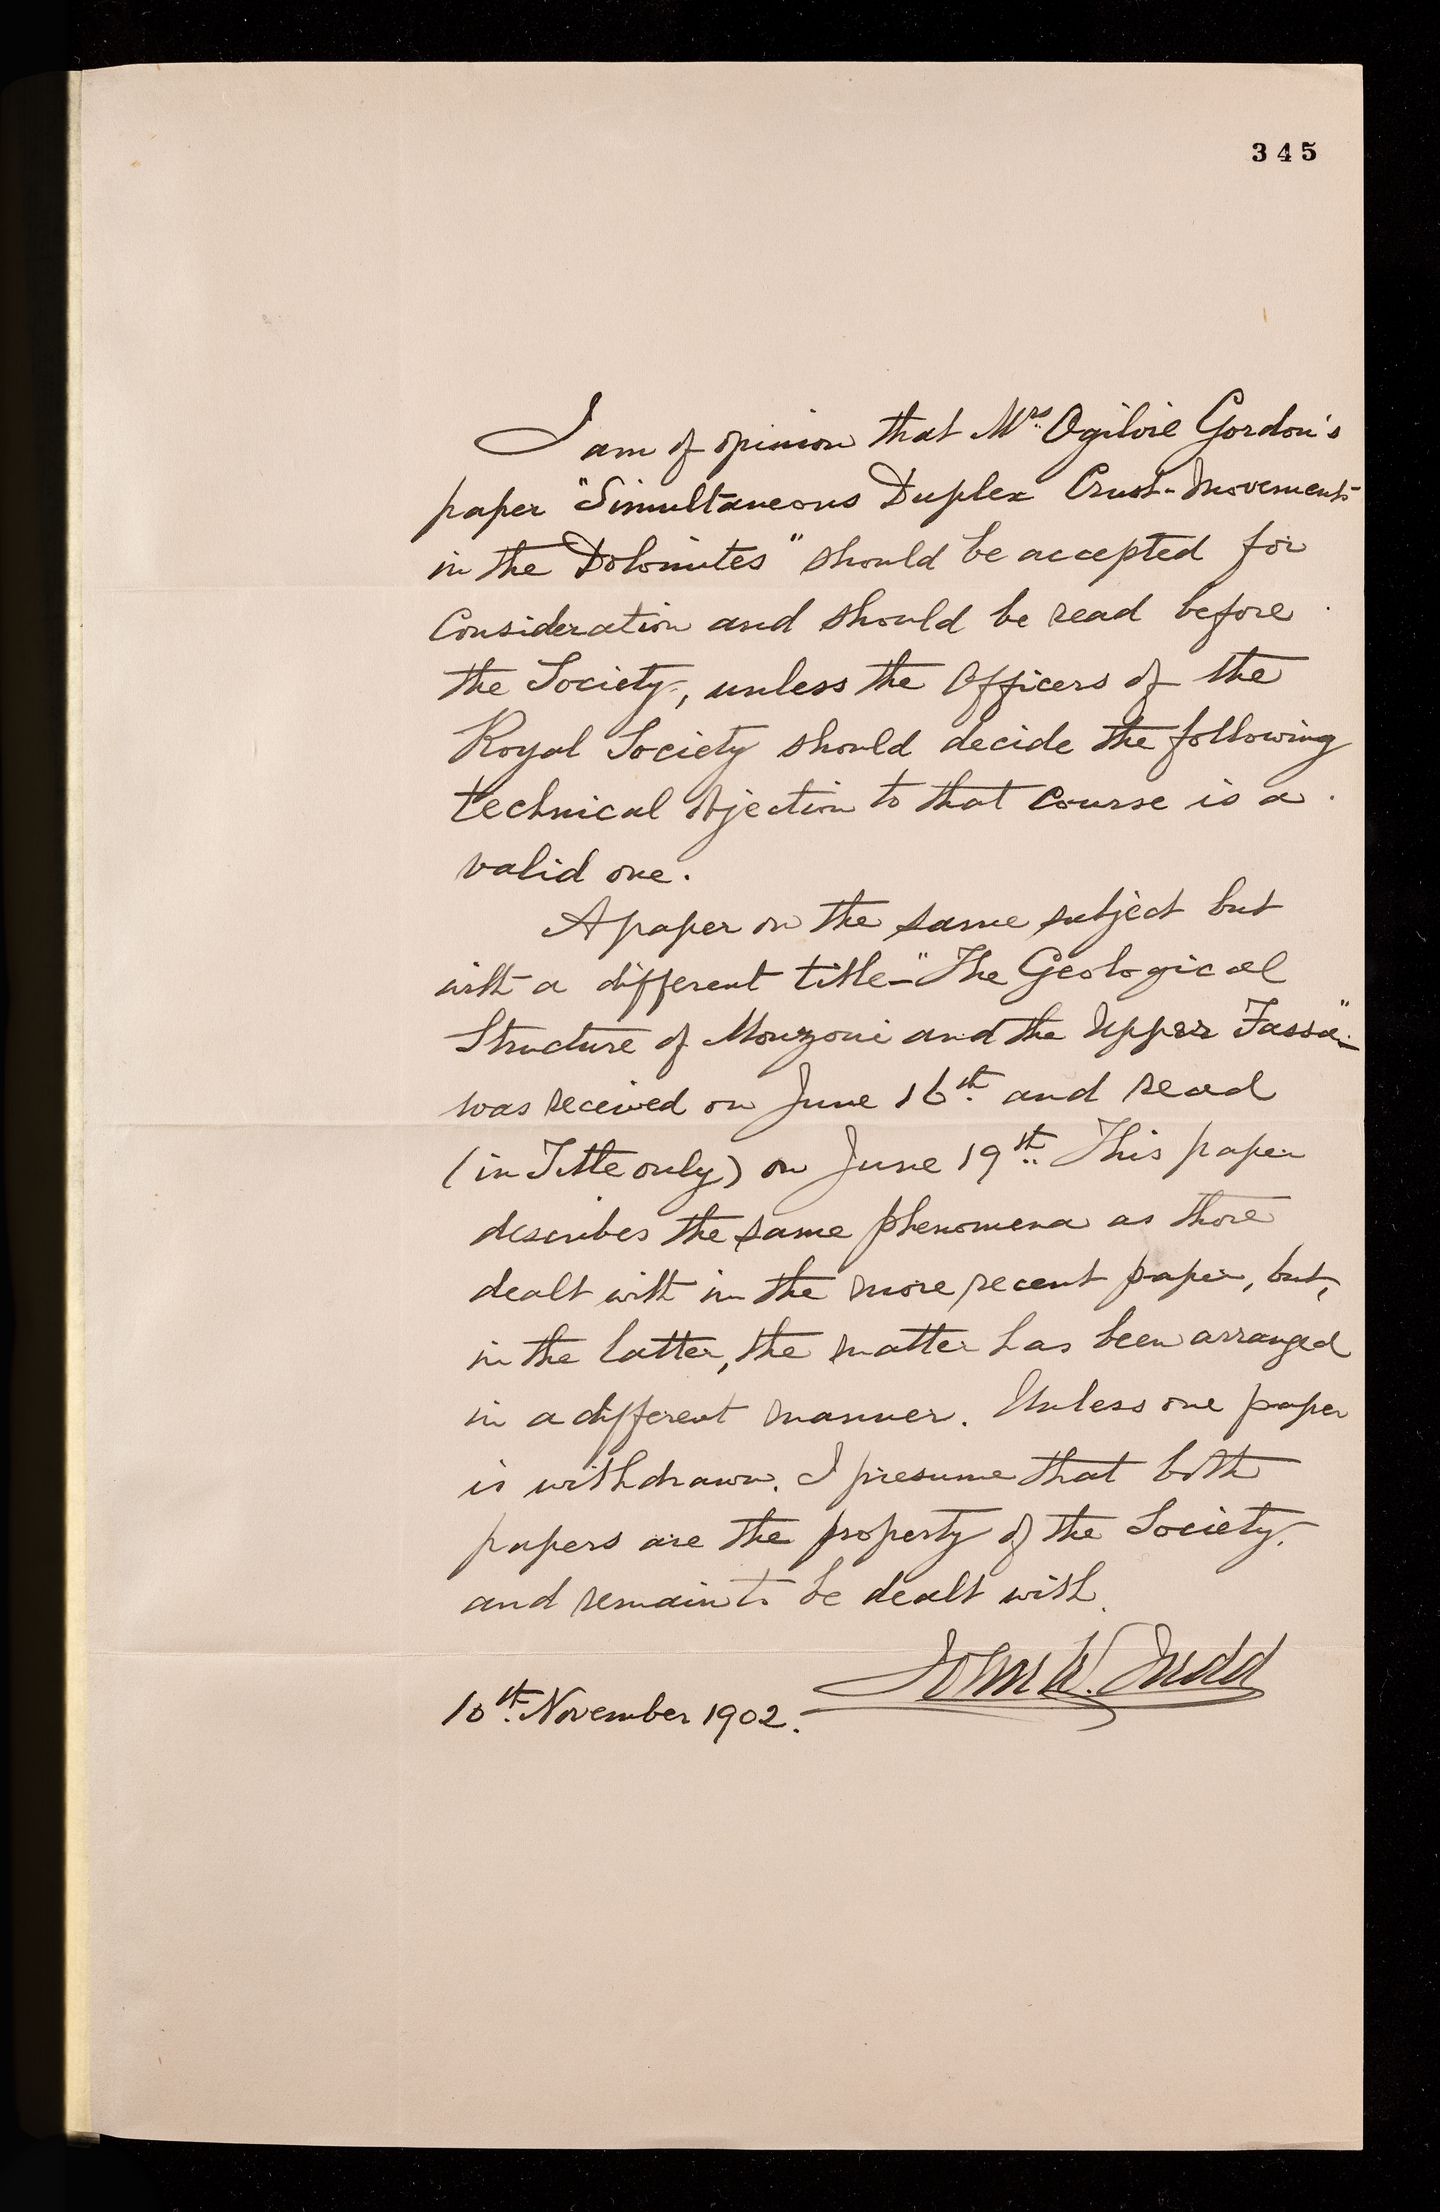 345
I am of opinion that Mrs. Ogilvie Gordon's
paper "Simultaneous Duplex Crust-Movements
in the Dolomites" should be accepted for
Consideration and should be read before
the Society, unless the Officers of the
Royal Society should decide the following
technical objection to that course is a
valid one.
A paper on the same subject but
with a different title—"The Geological
Structure of Monzoni and the Upper Fassa"—
was received on June 16th. and read
(in Title only) on June 19th. This paper
describes the same phenomena as those
dealt with in the more recent paper, but,
in the latter, the matter has been arranged
in a different manner. Unless one paper
is withdrawn, I presume that both
papers are the property of the Society,
and remain to be dealt with.
John W. Judd
10th. November 1902.